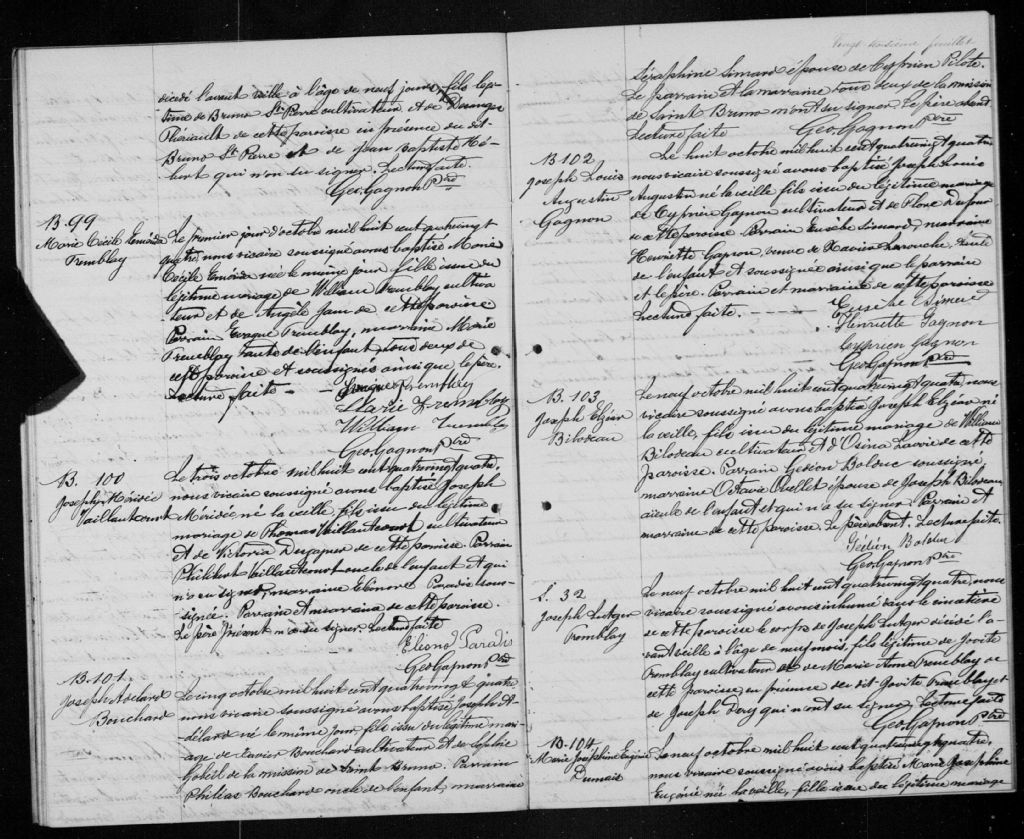 décédé l'avant veille à l'âge de neuf jours, fils légi-
time de Bruno St Pierre cultivateur et de Desanges
Thériault de cette paroisse en présence du dit
Bruno St Pierre et de Jean Baptiste Hé-
bert qui n'ont su signer. Lecture faite.
Geo Gagnon Ptre
B. 99
Marie Cécile Eméréda
Tremblay
Le premier jour d'octobre mil huit cent quatre vingt
quatre, nous vicaire soussigné avons baptisé Marie
Cécile née le même jour fille issue du
légitime mariage de William Tremblay cultiva
teur et de Angèle de cette paroisse
Parrain Tremblay, marraine Marie
Tremblay tante de l'enfant, tous deux de
cette paroisse et soussignés ainsi que le père.
Lecture faite - - Tremblay
Marie Tremblay
William Tremblay
Geo Gagnon ptre
B. 100
Joseph Méridée
Vaillancourt
Le trois octobre mil huit cent quatre vingt quatre,
nous vicaire soussigné avons baptisé Joseph
Méridée, né la veille, fils issu du légitime
mariage de Thomas Vaillancourt cultivateur
et de Victoria Desgagné de cette paroisse. Parrain
Philibert Vaillancourt oncle de l'enfant et qui
n'a su signer, marraine Eléonore Paradis sous-
signée. Parrain et marraine de cette paroisse.
Le père présent n'a su signer. Lecture faite
Eleono Paradis
Geo Gagnon Ptre
B. 101
Joseph Adélard
Bouchard
Le cinq octobre mil huit cent quatre vingt quatre
nous vicaire soussigné avons baptisé Joseph A-
délard né le même jour, fils issu du légitime mari-
age de Xavier Bouchard cultivateur et de Sophie
Gobeil de la mission de Saint Bruno. Parrain
Philéas Bouchard oncle de l'enfant, marraine
Vingt troisième feuillet
Séraphine Simard épouse de Cyprien Pilote.
Le parrain et la marraine tous deux de la mission
de Saint Bruno n'ont su signer. Le père absent
Lecture faite
Geo Gagnon Ptre
B 102
Joseph Louis
Augustin
Gagnon
Le huit octobre mil huit cent quatre vingt quatre
nous vicaire soussigné avons baptisé Joseph Louis
Augustin né la veille fils issu du légitime mariage
de Cyprien Gagnon cultivateur et de Flore Dufour
de cette paroisse Parrain Eusèbe Simard, marraine
Henriette Gagnon, veuve de Xavier Larouche, tante
de l'enfant et soussignée ainsi que le parrain
et le père. Parrain et marraine de cette paroisse
Lecture faite. - - - - -
Eusebe Simard
Henriette Gagnon
Cyprien Gagnon
Geo Gagnon Ptre
B. 103
Joseph Elzéar
Bilodeau
Le neuf octobre mil huit cent quatre vingt quatre, nous
vicaire soussigné avons baptisé Joseph Elzéar né
la veille, fils issu du légitime mariage de William
Bilodeau cultivateur et d'Osina Lavoie de cette
paroisse. Parrain Gédéon Bolduc soussigné
marraine Octavie Ouellet épouse de Joseph Bilodeau
aieule de l'enfant et qui n'a su signer. Parrain et
marraine de cette paroisse. Le père absent. Lecture faite.
Gédéon Bolduc
Geo Gagnon Ptre
S. 32
Joseph Ludger
Tremblay
Le neuf octobre mil huit cent quatre vingt quatre, nous
vicaire soussigné avons inhumé dans le cimetière
de cette paroisse le corps de Joseph Ludger décédé l'a-
vant veille à l'âge de neuf mois, fils légitime de Jovite
Tremblay cultivateur et de Marie Anne Tremblay de
cette paroisse, en présence du dit Jovite Tremblay et
de Joseph Dery qui n'ont su signer. Lecture faite
Geo Gagnon Ptre
B-104
Marie Joséphine Eugénie
Dumais
Le neuf octobre mil huit cent quatre vingt quatre,
nous vicaire soussigné avons baptisé Marie Joséphine
Eugénie née la veille, fille issue du légitime mariage